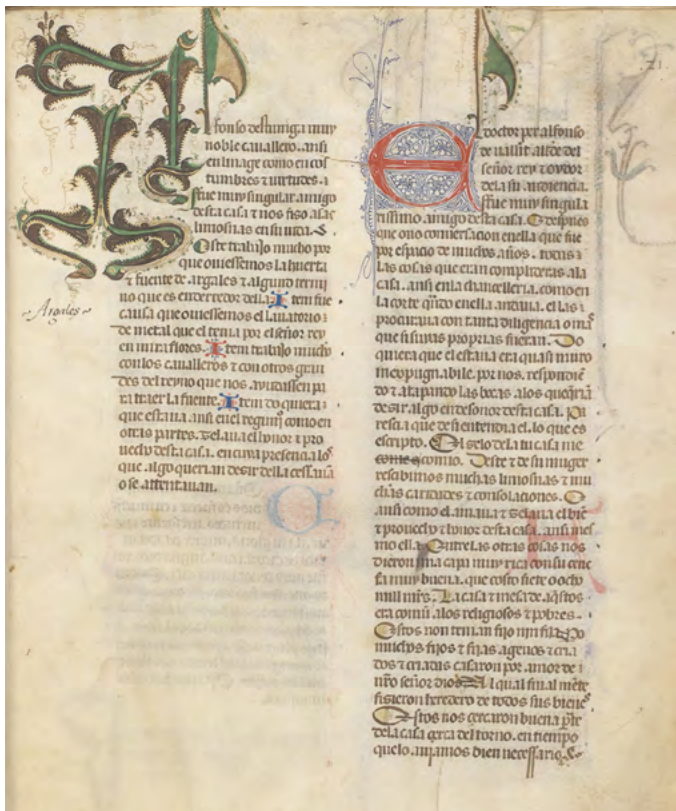 21
Alfonso destuniga muy
noble cauallero. ansi
en linage como en cos
tumbres τ uirtudes.
ffue muy singular amigo
desta casa τ nos fiso asas
limosnas en su uida.
Este trabajo mucho por
que ouiessemos la huerta
τ fuente de argales τ algund termi
no que es enderredor della. Item fue
causa que ouiessemos el lauatorio
de metal que el tenia por el señor rey
en miraflores. Item trabajo mucho
con los caualleros τ con otros gran
des del reyno que nos ayudassen pa
ra traer la fuente. Item do quiera
que estaua. ansi en el regimj como en
otras partes. Selaua el honor τ pro
uecho desta casa. en cuya presencia los
que algo querian desir della cessauan
o se attentauan.
Argales
El doctor per alfonso
de ualłit allde del
señor rey τ oydor
dela su audiencia.
ffue muy singula
rissimo amigo desta casa. E despues
que ouo conuersacion enella que fue
por espacio de muchos años. todas
las cosas que eran complideras ala
casa. ansi enla chancelleria. como en
la corte qñdo enella andaua. el las
procuraua con tanta diligencia o mas
que si suyas proprias fueran. Do
quiera que el estaua era quasi muro
inexpugnabile. por nos. respondiẽ
do τ atapando las bocas. alos que q̃riã
desir algo en desonor desta casa. Pa
resca que desi entendia el. lo que es
escripto. El selo dela tu casa me
come comio. Deste τ de su muger
rescibimos muchas limosnas τ mu
chas caritades τ consolaciones. E
ansi como el amaua τ selaua el biẽ
τ prouecho τ honor desta casa. ansi mes
mo ella. Entre las otras cosas nos
dieron una capa muy rica con su cene
fa muy buena. que costo siete o ocho
mill mrs. La casa τ mesa de aq̃stos
era comũ alos religiosos τ pobres.
Estos non tenian fijo nin fija
muchos fijos τ fijas agenos τ cria
dos τ criadas casaron por amor de
nr̃o señor dios. Al qual final mẽte
fisieron heredero de todos sus bienes
Estos nos cercaron buena p̃te
dela casa cerca del torno. en tiempo
quelo auiamos bien necessario.